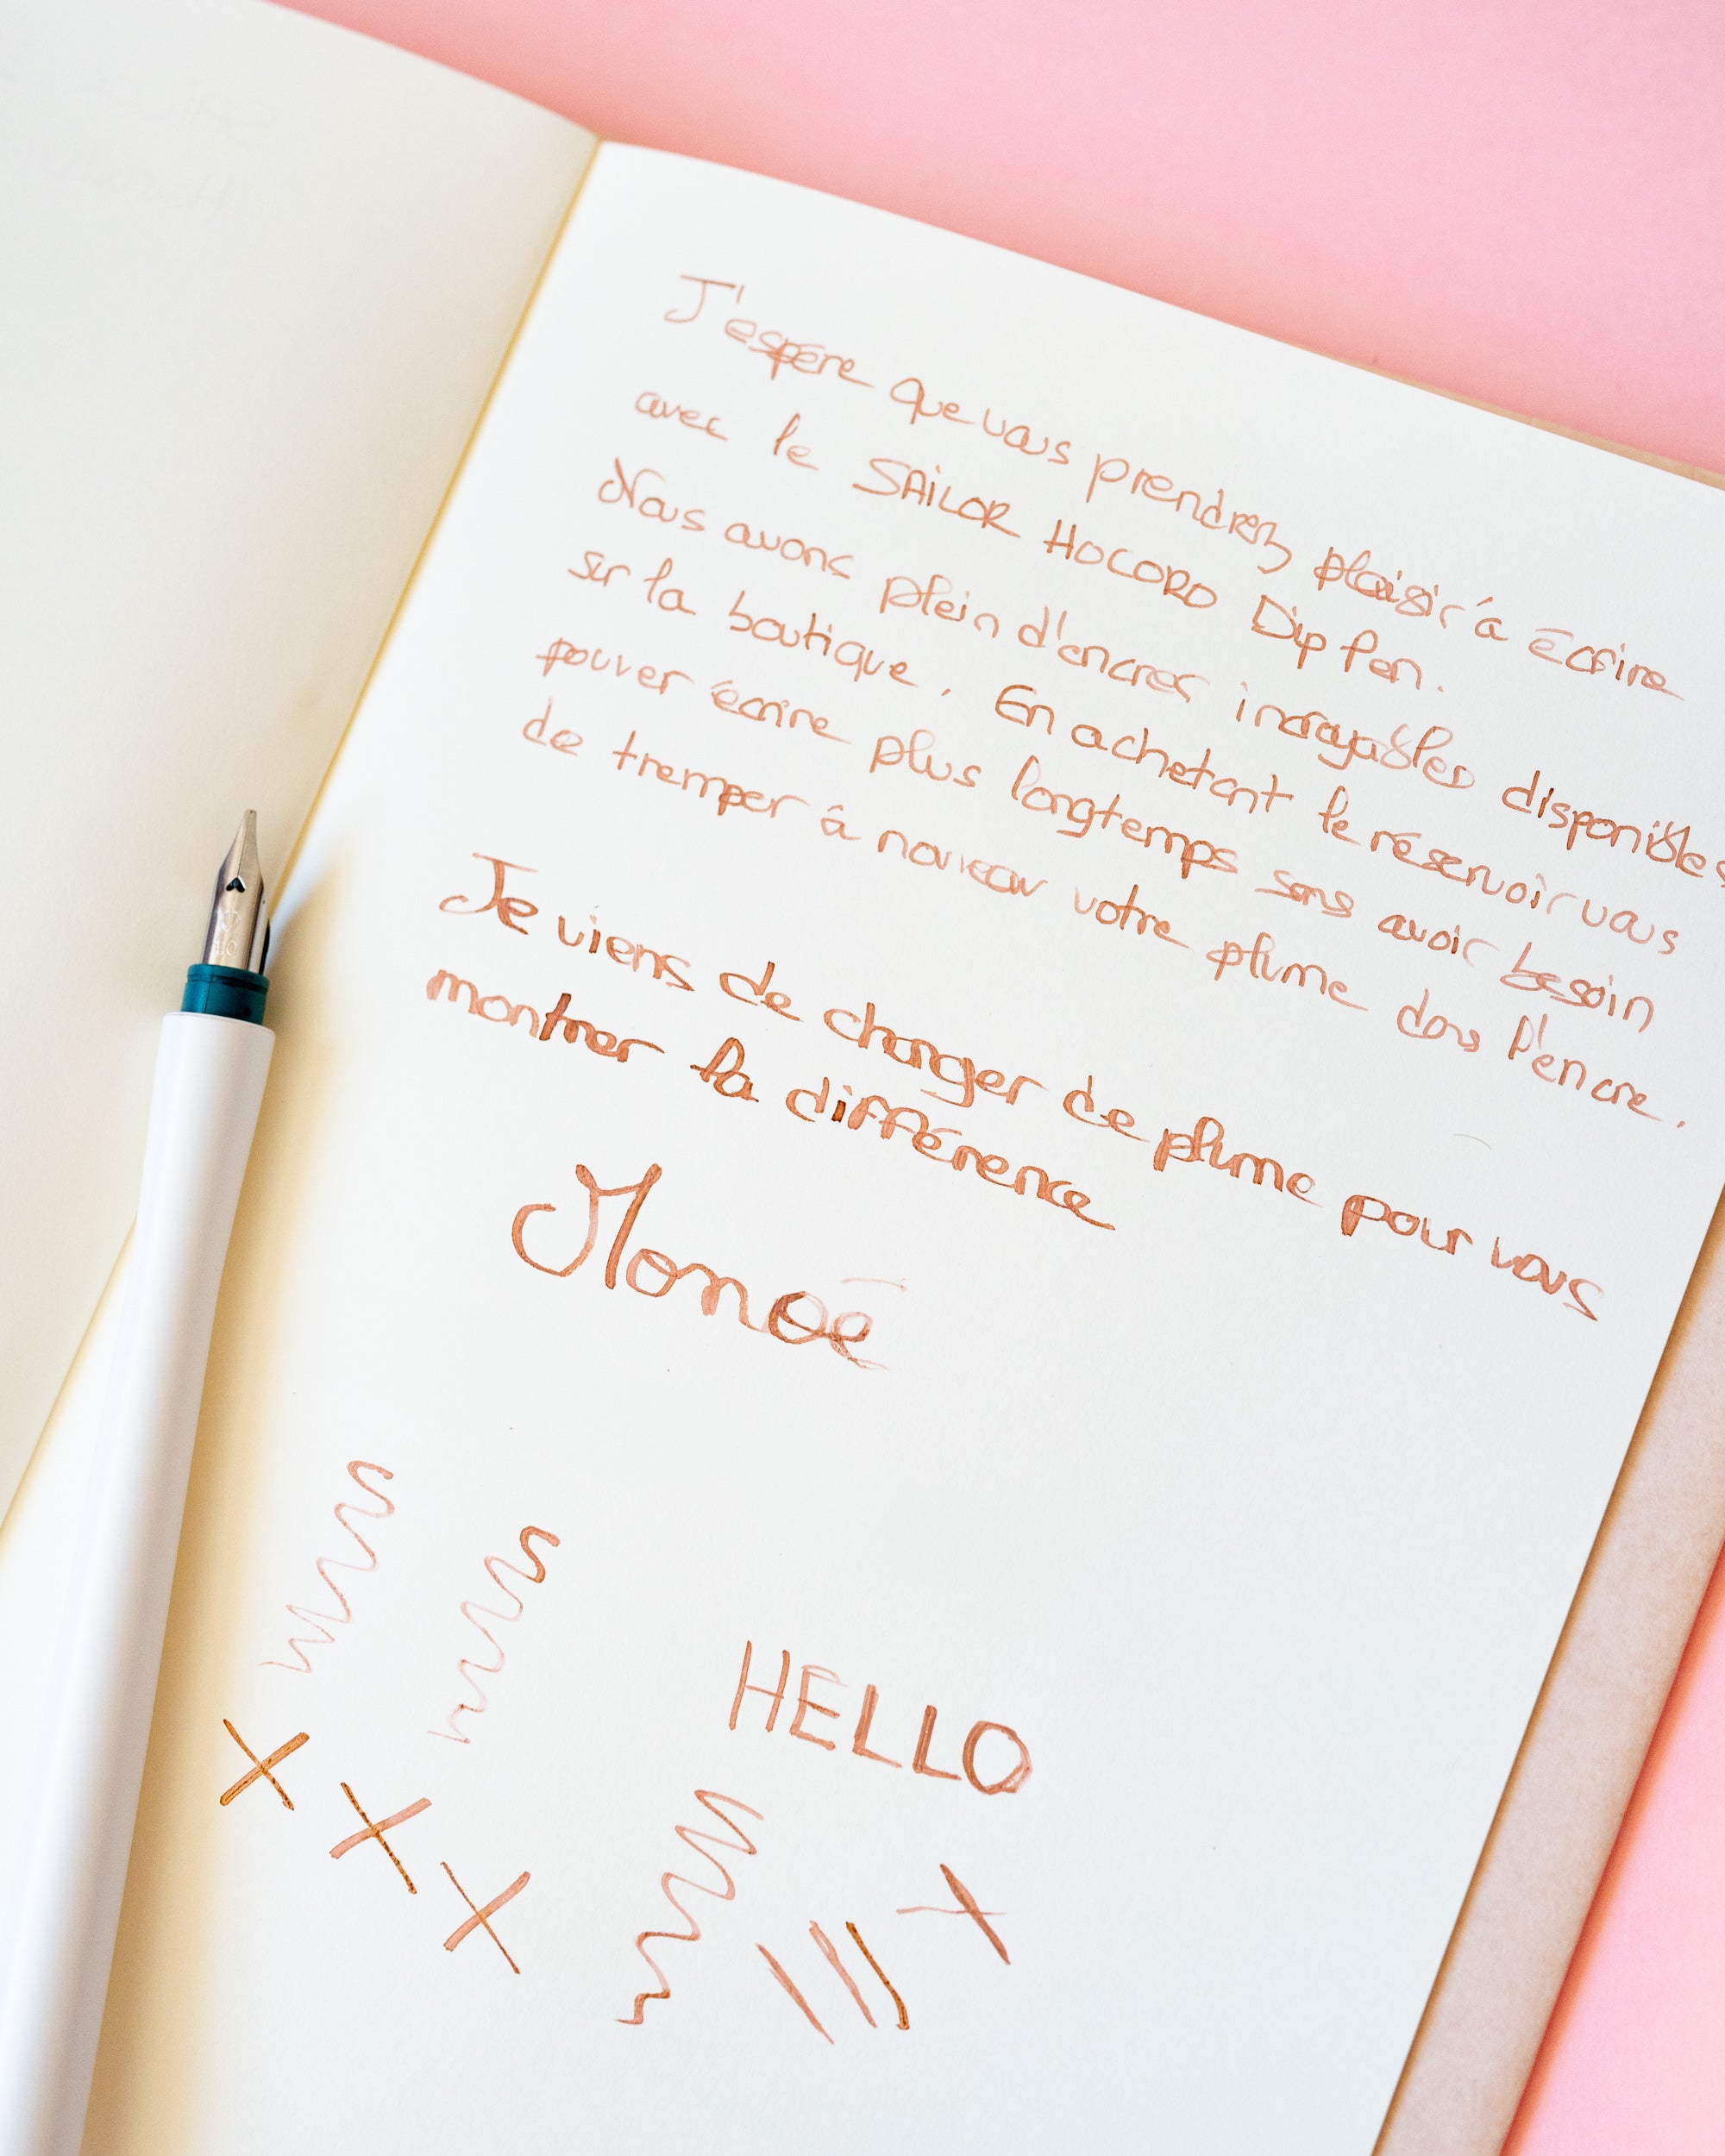 J'espère que vous prendrez plaisir à écrire
avec le SAiLOR HOCORO Dip Pen.
Nous avons plein d'encres incroyables disponibles
sur la boutique. En achetant le réservoir vous
pouver écrire plus longtemps sans avoir besoin
de tremper à nouveau votre plume dans l'encre.
Je viens de changer de plume pour vous
montrer la différence
Monoé
HELLO